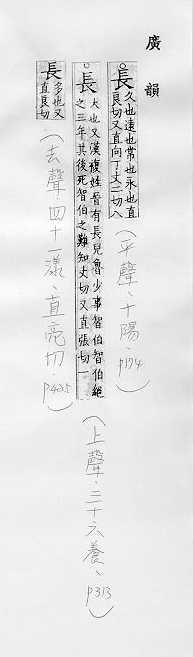 廣韻
長久也遠也常也永也直
良切又直向丁丈二切八
(平聲、十陽、p174)
長大也又漢複姓晉有長兒魯少事智伯智伯絕
之三年其後死智伯之難知丈切又直張切一
(上聲、三十六養、p313)
長多也又
直良切
(去聲、四十一漾、直亮切、p425)